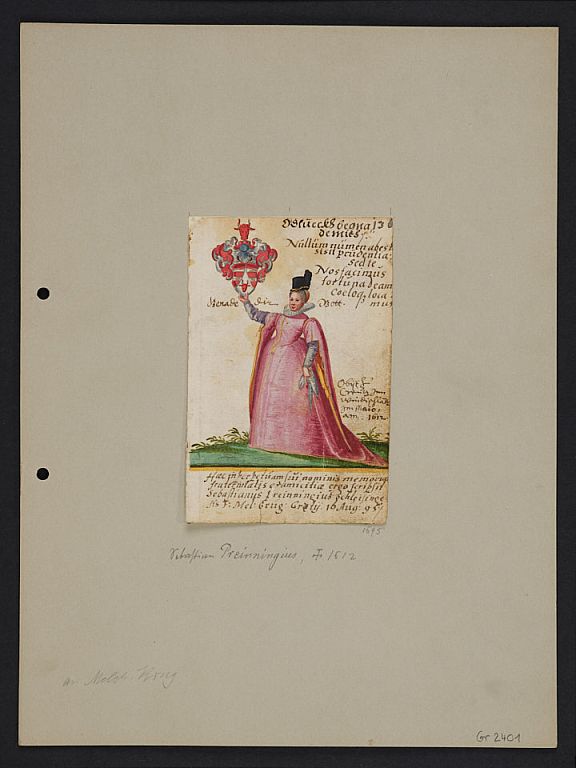 demits.
Nullum numen abest
sis prudentia
sed te
Nos facimus
fortuna deam
Coeloq. loca
mus
Genade die Gott.
Obijt
in Maio
an. 1612
Hæc in perpetuam sui nominis memoriam
fraternitatis et amicitiæ ergo scripsit
Sebastianus Preinningius
Mel. Crug. 16 Aug. 95
1595
Sebastian Preinningius, † 1612
an Melch. Krug
Gr 2401